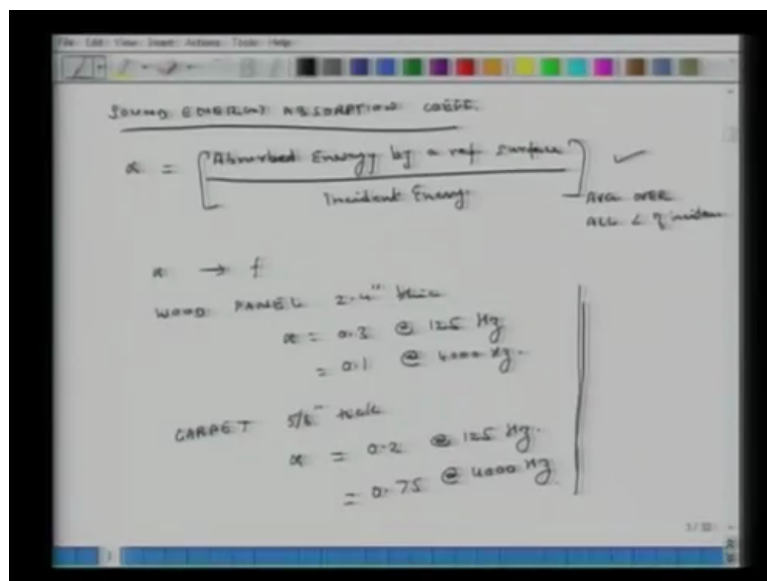 File Edit View Insert Actions Tools Help
SOUND ENERGY ABSORPTION COEFF.
α = [Absorbed Energy by a ref surface
Incident Energy.]
AVG OVER
ALL ∠ of inciden
α → f
WOOD PANEL 2-4" thic
α = 0.3 @ 125 Hz
= 0.1 @ 4000 Hz.
CARPET 5/8" thick
α = 0.2 @ 125 Hz.
= 0.75 @ 4000 Hz